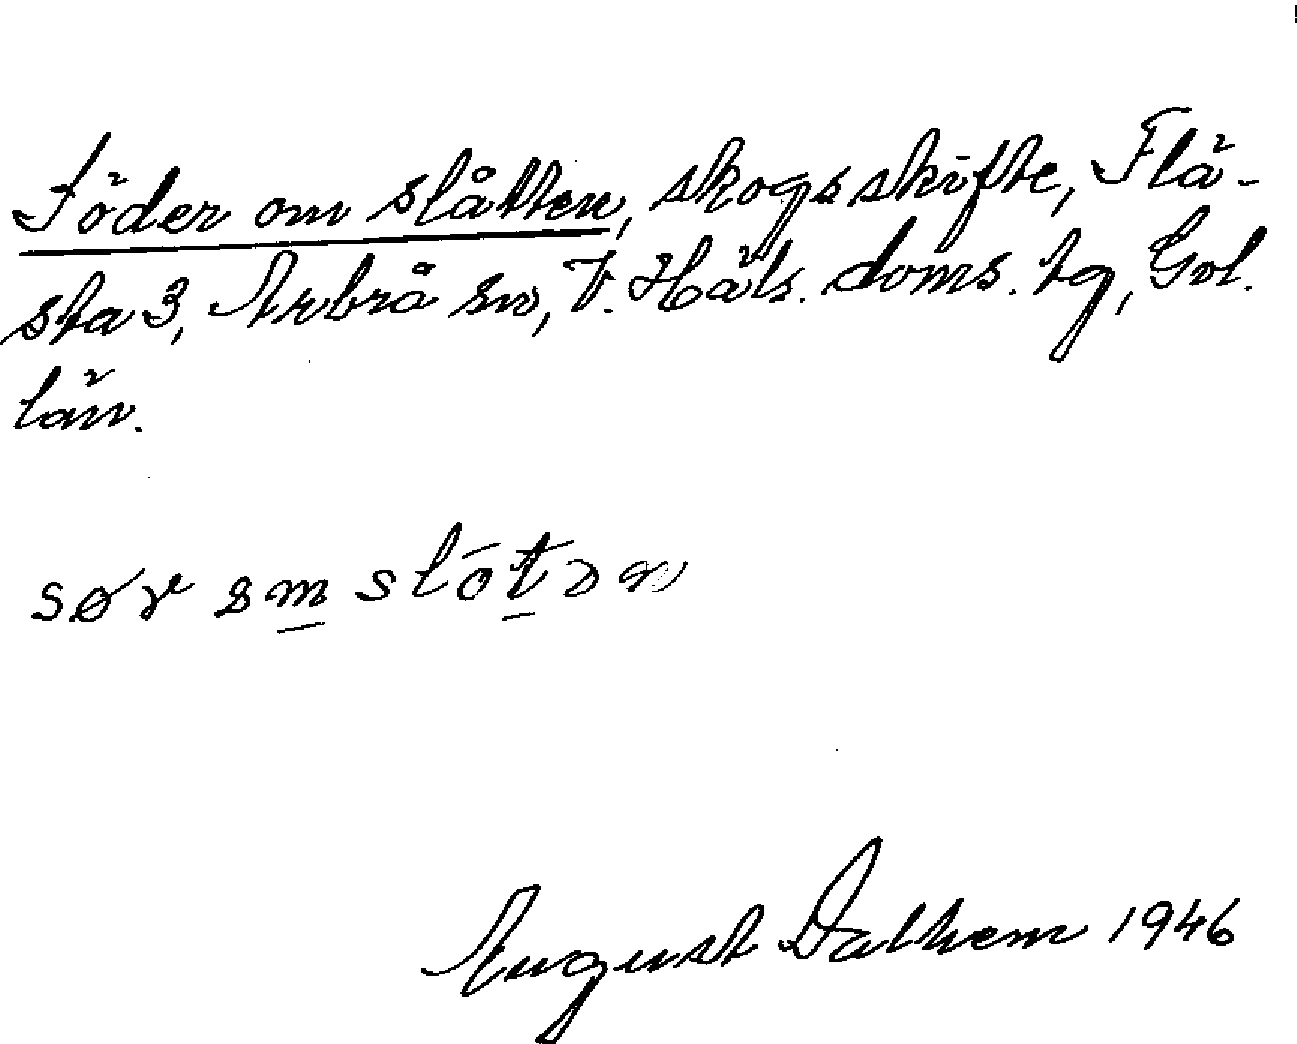 Söder om slåtten, skogsskifte, Flä-
sta 3, Arbrå sn, V. Häls. doms. tg, Gvl.
län.
sør əm slōtən
August Dalhem 1946